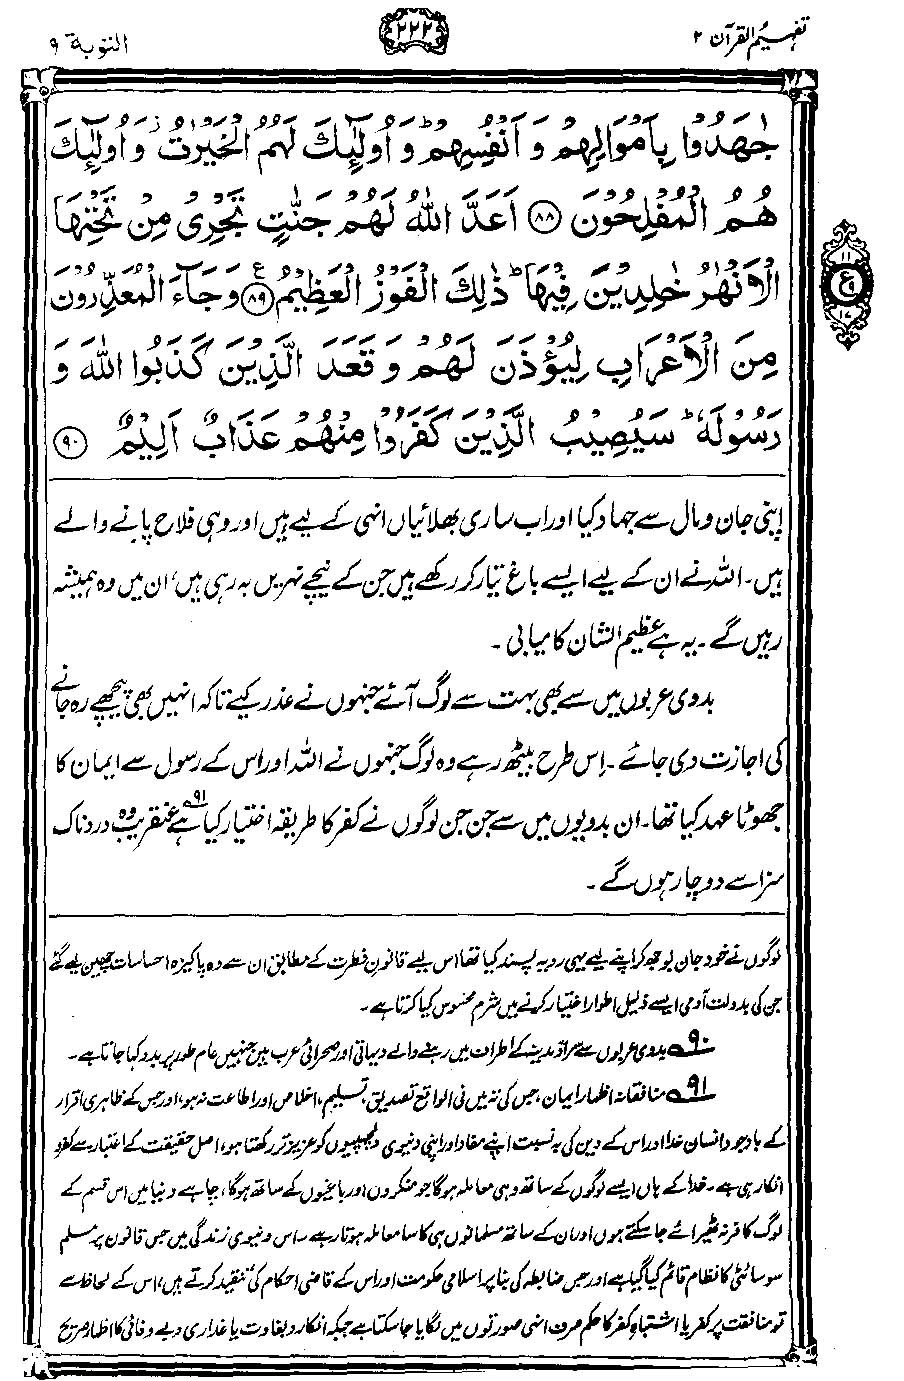 تفہیم القرآن ۲
۲۲۲
التوبة ۹
جٰهَدُوْا بِاَمْوَالِهِمْ وَ اَنْفُسِهِمْ ؕ وَ اُولٰٓئِكَ لَهُمُ الْخَيْرٰتُ ز وَ اُولٰٓئِكَ
هُمُ الْمُفْلِحُوْنَ ۸۸ اَعَدَّ اللّٰهُ لَهُمْ جَنّٰتٍ تَجْرِيْ مِنْ تَحْتِهَا
الْاَنْهٰرُ خٰلِدِيْنَ فِيْهَا ؕ ذٰلِكَ الْفَوْزُ الْعَظِيْمُ ۸۹ ع وَ جَآءَ الْمُعَذِّرُوْنَ
۱۱
ع ۹
۱۷
مِنَ الْاَعْرَابِ لِيُؤْذَنَ لَهُمْ وَ قَعَدَ الَّذِيْنَ كَذَبُوا اللّٰهَ وَ
رَسُوْلَهٗ ؕ سَيُصِيْبُ الَّذِيْنَ كَفَرُوْا مِنْهُمْ عَذَابٌ اَلِيْمٌ ۹۰
اپنی جان و مال سے جہاد کیا اور اب ساری بھلائیاں انہی کے لیے ہیں اور وہی فلاح پانے والے
ہیں۔ اللہ نے ان کے لیے ایسے باغ تیار کر رکھے ہیں جن کے نیچے نہریں بہ رہی ہیں، ان میں وہ ہمیشہ
رہیں گے۔ یہ ہے عظیم الشان کامیابی۔
بدوی عربوں میں سے بھی بہت سے لوگ آئے جنہوں نے عذر کیے تاکہ انہیں بھی پیچھے رہ جانے
کی اجازت دی جائے۔ اِس طرح بیٹھ رہے وہ لوگ جنہوں نے اللہ اور اس کے رسول سے ایمان کا
جھوٹا عہد کیا تھا۔ ان بدویوں میں سے جن جن لوگوں نے کفر کا طریقہ اختیار کیا ہے ۹۱ عنقریب وہ دردناک
سزا سے دوچار ہوں گے۔
لوگوں نے خود جان بوجھ کر اپنے لیے یہی رویہ پسند کیا تھا اس لیے قانونِ فطرت کے مطابق ان سے وہ پاکیزہ احساسات چھین لیے گئے
جن کی بدولت آدمی ایسے ذلیل اطوار اختیار کرنے میں شرم محسوس کیا کرتا ہے۔
۹۰ بدوی عربوں سے مراد مدینہ کے اطراف میں رہنے والے دیہاتی اور صحرائی عرب ہیں جنہیں عام طور پر بدو کہا جاتا ہے۔
۹۱ منافقانہ اظہارِ ایمان، جس کی تہ میں فی الواقع تصدیق، تسلیم، اخلاص اور اطاعت نہ ہو، اور جس کے ظاہری اقرار
کے باوجود انسان خدا اور اس کے دین کی بہ نسبت اپنے مفاد اور اپنی دنیوی دلچسپیوں کو عزیز تر رکھتا ہو، اصل حقیقت کے اعتبار سے کفر و
انکار ہی ہے۔ خدا کے ہاں ایسے لوگوں کے ساتھ وہی معاملہ ہوگا جو منکروں اور باغیوں کے ساتھ ہوگا، چاہے دنیا میں اس قسم کے
لوگ کافر نہ ٹھیرائے جا سکتے ہوں اور ان کے ساتھ مسلمانوں ہی کا سا معاملہ ہوتا رہے۔ اس دنیوی زندگی میں جس قانون پر مسلم
سوسائٹی کا نظام قائم کیا گیا ہے اور جس ضابطہ کی بنا پر اسلامی حکومت اور اس کے قاضی احکام کی تنفیذ کرتے ہیں، اس کے لحاظ سے
تو منافقت پر کفر یا اشتباہِ کفر کا حکم صرف انہی صورتوں میں لگایا جا سکتا ہے جبکہ انکار و بغاوت یا غداری و بے وفائی کا اظہار صریح